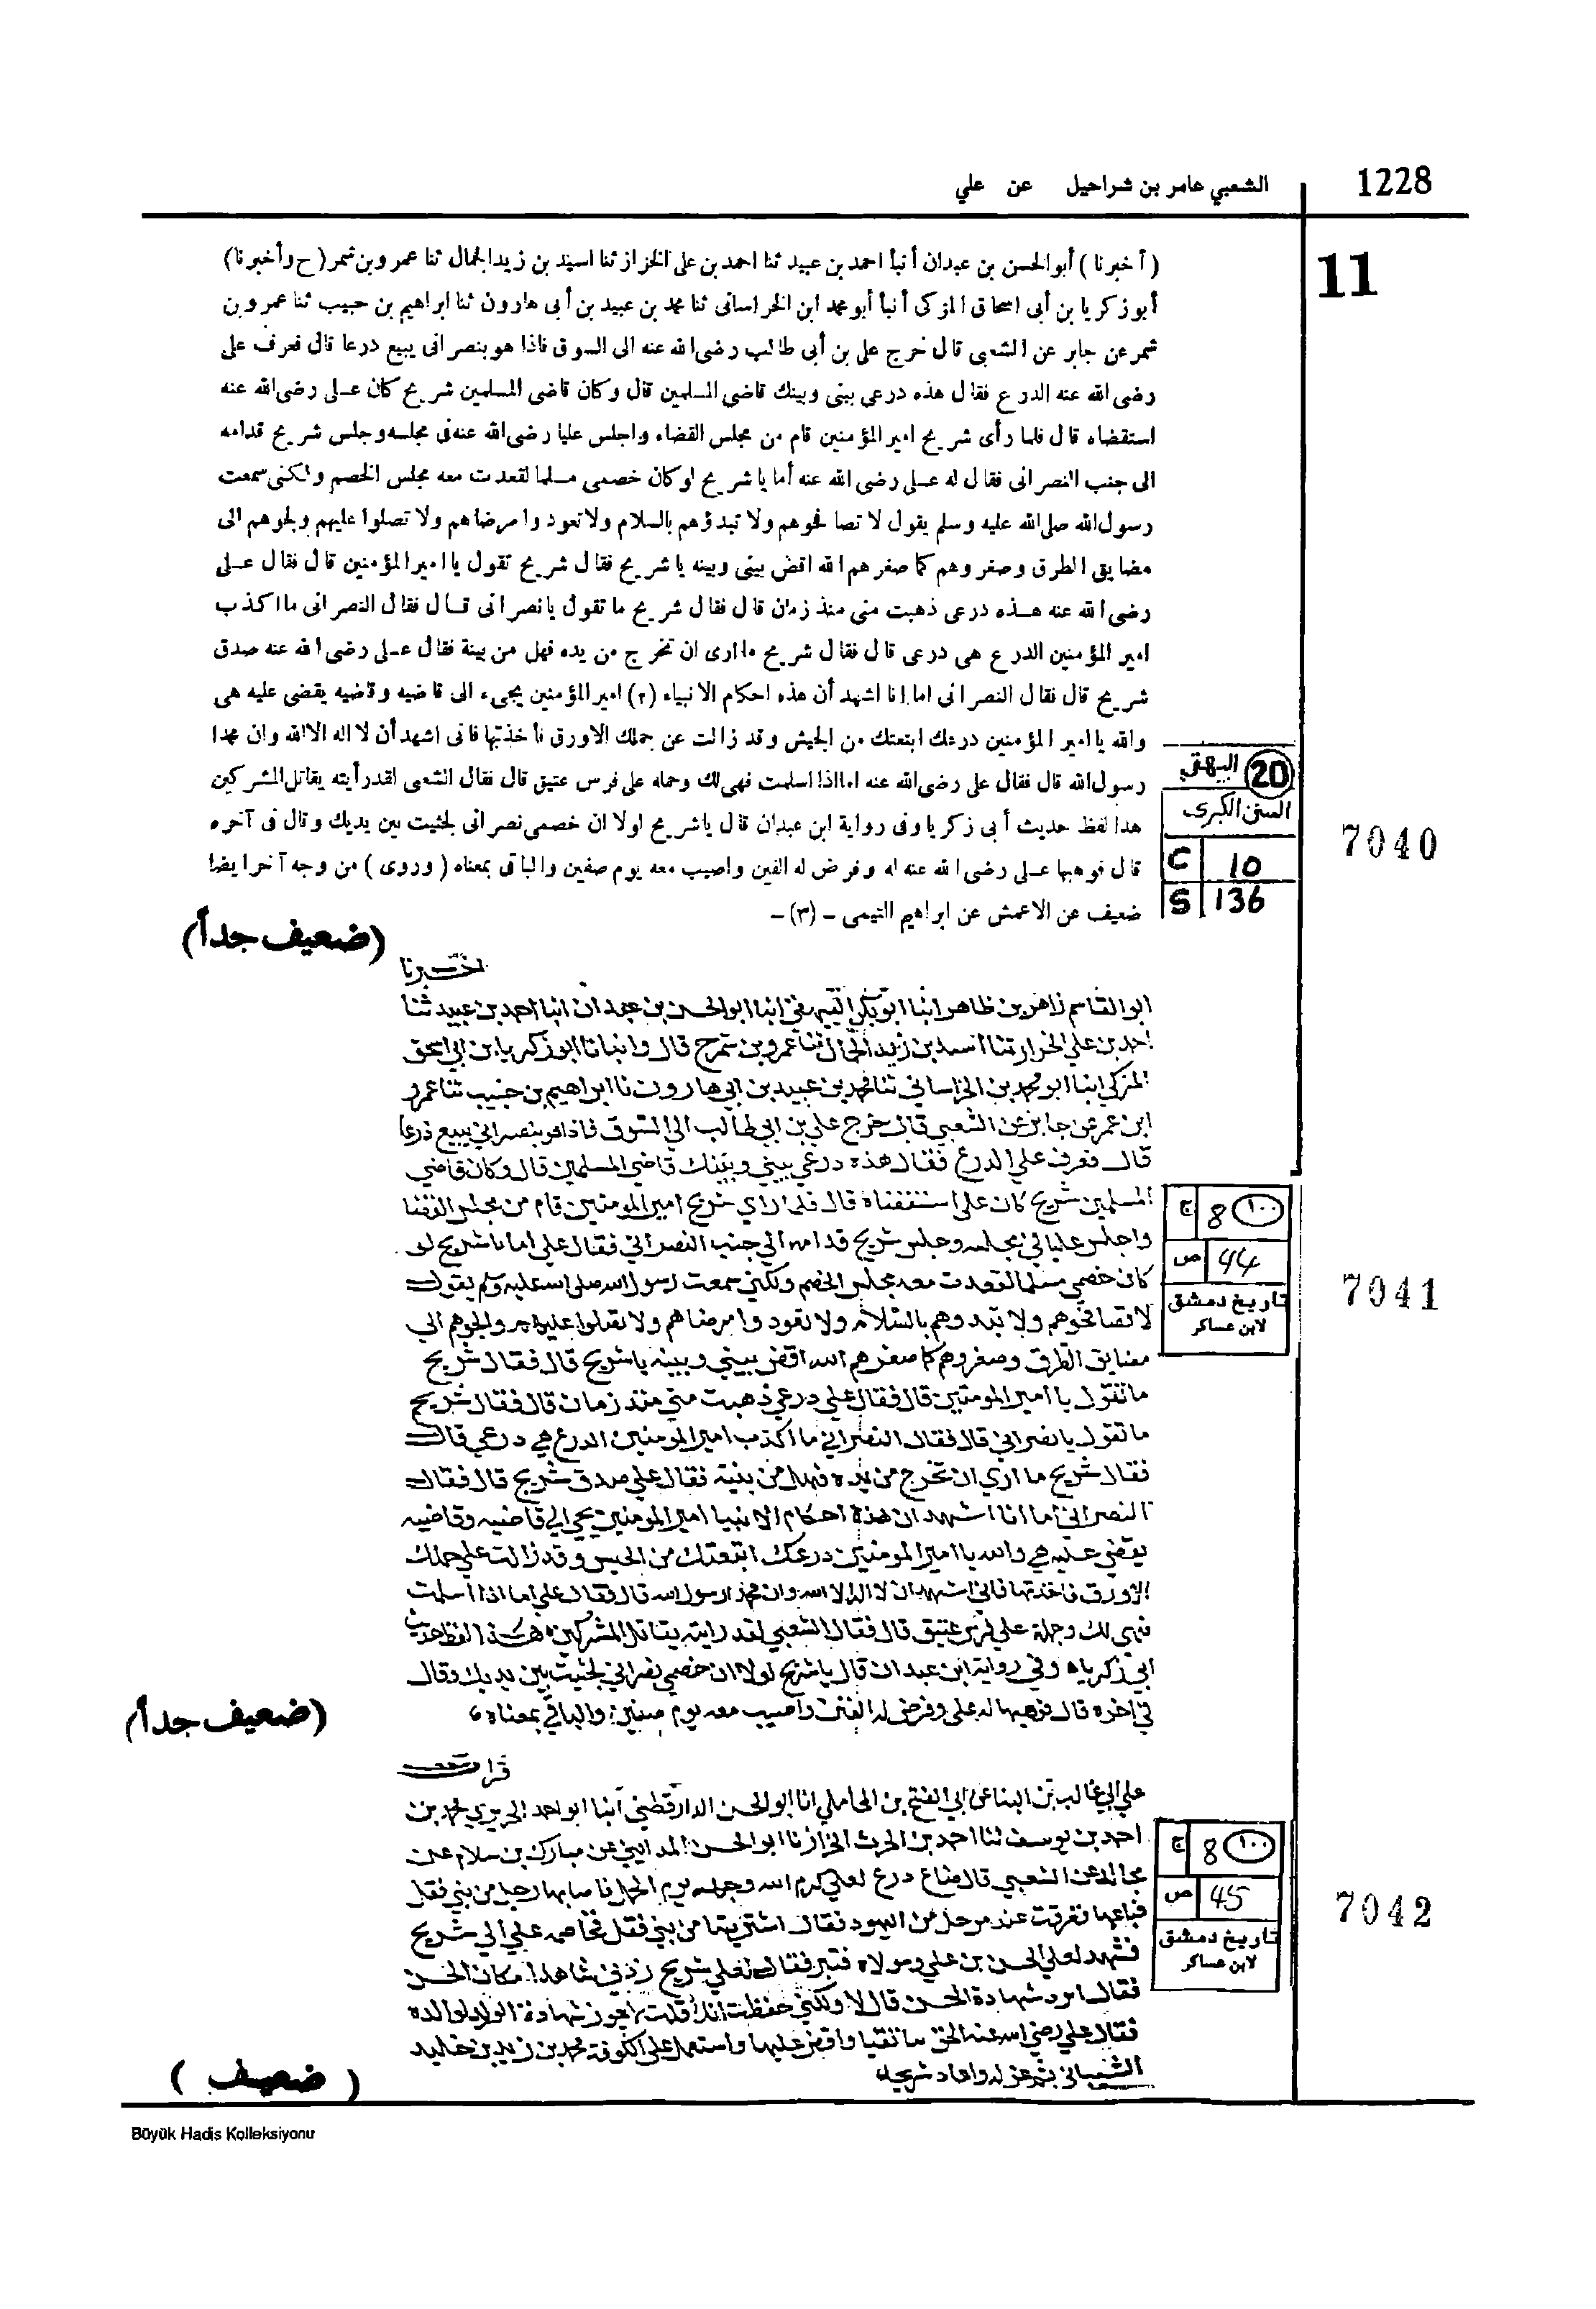 1228
الشعبي عامر بن شراحيل عن علي
11
(أخبرنا) أبو الحسن بن عبدان أنبأ احمد بن عبيد ثنا احمد بن على الخزاز ثنا اسيد بن زيد الجمال ثنا عمرو بن شمر (ح وأخبرنا)
أبو زكريا بن أبى اسحاق المزكى أنبأ أبو محمد ابن الخراسانى ثنا محمد بن عبيد بن أبى هارون ثنا ابراهيم بن حبيب ثنا عمرو بن
شمر عن جابر عن الشعبى قال خرج على بن أبى طالب رضى الله عنه الى السوق فاذا هو بنصرانى يبيع درعا قال فعرف على
رضى الله عنه الدرع فقال هذه درعى بينى وبينك قاضى المسلمين قال وكان قاضى المسلمين شريح كان على رضى الله عنه
استقضاه قال فلما رأى شريح امير المؤمنين قام من مجلس القضاء واجلس عليا رضى الله عنه فى مجلسه وجلس شريح قدامه
الى جنب النصرانى فقال له على رضى الله عنه أما يا شريح لو كان خصمى مسلما لقعدت معه مجلس الخصم ولكنى سمعت
رسول الله صلى الله عليه وسلم يقول لا تصافحوهم ولا تبدؤهم بالسلام ولا تعودوا مرضاهم ولا تصلوا عليهم ولجوهم الى
مضايق الطرق وصغروهم كما صغرهم الله اقض بينى وبينه يا شريح فقال شريح تقول يا امير المؤمنين قال فقال على
رضى الله عنه هذه درعى ذهبت منى منذ زمان قال فقال شريح ما تقول يا نصرانى قال فقال النصرانى ما اكذب
امير المؤمنين الدرع هى درعى قال فقال شريح ما ارى ان تخرج من يده فهل من بينة فقال على رضى الله عنه صدق
شريح قال فقال النصرانى اما انا اشهد أن هذه احكام الانبياء (٢) امير المؤمنين يجىء الى قاضيه وقاضيه يقضى عليه هى
والله يا امير المؤمنين درعك ابتعتك من الجيش وقد زالت عن جملك الاورق فأخذتها فانى اشهد أن لا اله الا الله وان محمدا
رسول الله قال فقال على رضى الله عنه اما اذا اسلمت فهى لك وحمله على فرس عتيق قال فقال الشعبى لقد رأيته يقاتل المشركين
هذا لفظ حديث أبى زكريا وفى رواية ابن عبدان قال يا شريح لولا ان خصمى نصرانى لجثيت بين يديك وقال فى آخره
قال فوهبها على رضى الله عنه له وفرض له الفين واصيب معه يوم صفين والباقى بمعناه (وروى) من وجه آخر ايضا
ضعيف عن الاعمش عن ابراهيم التيمى - (٣) -
20 البيهقي
السنن الكبرى
C 10
S 136
7040
(ضعيف جداً)
اخبرنا
ابو القاسم زاهر بن طاهر انبا ابو بكر البيهقي انبا ابو الحسن بن عبدان انبا احمد بن عبيد ثنا
احمد بن علي الخراز ثنا اسيد بن زيد الجمال ثنا عمرو بن شمر ح قال وانبانا ابو زكريا بن ابي اسحق
المزكي انبا ابو محمد بن الخراساني ثنا محمد بن عبيد بن ابي هارون نا ابراهيم بن حبيب ثنا عمرو
ابن عمر عن جابر عن الشعبي قال خرج علي بن ابي طالب الي السوق فاذا هو بنصراني يبيع درعا
قال فعرف علي الدرع فقال هذه درعي بيني وبينك قاضي المسلمين قال وكان قاضي
المسلمين شريح كان علي استقضاه قال فلما راي شريح امير المومنين قام من مجلس القضا
واجلس عليا في مجلسه وجلس شريح قدامه الي جنب النصراني فقال علي اما يا شريح لو
كان خصمي مسلما لقعدت معه مجلس الخصم ولكني سمعت رسول الله صلى الله عليه وسلم يقول
لا تصافحوهم ولا تبدوهم بالسلام ولا تعودوا مرضاهم ولا تصلوا عليهم والجوهم الي
مضايق الطرق وصغروهم كما صغرهم الله اقض بيني وبينه يا شريح قال فقال شريح
ما تقول يا امير المومنين قال فقال علي درعي ذهبت مني منذ زمان قال فقال شريح
ما تقول يا نصراني قال فقال النصراني ما اكذب امير المومنين الدرع هي درعي قال
فقال شريح ما اري ان تخرج من يده فهل من بينة فقال علي صدق شريح قال فقال
النصراني اما انا اشهد ان هذه احكام الانبيا امير المومنين يجي الي قاضيه وقاضيه
يقضي عليه هي والله يا امير المومنين درعك ابتعتك من الجيش وقد زالت علي جملك
الاورق فاخذتها فاني اشهد ان لا اله الا الله وان محمدا رسول الله قال فقال علي اما اذا اسلمت
فهي لك وحمله علي فرس عتيق قال فقال الشعبي لقد رايته يقاتل المشركين هذا لفظ حديث
ابي زكريا وفي رواية ابن عبدان قال يا شريح لولا ان خصمي نصراني لجثيت بين يديك وقال
في اخره قال فوهبها له علي وفرض له الفين واصيب معه يوم صفين والباقي بمعناه
١٠٠ 8 ج
44 ص
تاريخ دمشق
لابن عساكر
7041
(ضعيف جداً)
قرات
علي ابي غالب بن البنا عن ابي الفتح بن المحاملي انا ابو الحسن الدارقطني انبا ابو احمد الحريري محمد بن
احمد بن يوسف ثنا احمد بن الحرث الخراز نا ابو الحسن المدايني عن مبارك بن سلام عن
مجالد عن الشعبي قال ضاع درع لعلي كرم الله وجهه يوم الجمل فاصابها رجل من بني فقل
فباعها فعرفت عند رجل من اليهود فقال اشتريتها من بني فقل فخاصمه علي الي شريح
فشهد لعلي الحسن بن علي ومولاه قنبر فقال لعلي شريح زدني شاهدا مكان الحسن
فقال اترد شهادة الحسن قال لا ولكني حفظت انك قلت لا يجوز شهادة الولد لوالده
فقال علي رضي الله عنه الحق واقض عليها واستعمل علي الكوفة محمد بن زيد بن خليد
الشيباني ثم عزله واعاد شريحا
١٠٠ 8 ج
45 ص
تاريخ دمشق
لابن عساكر
7042
(ضعيف)
Büyük Hadis Kolleksiyonu